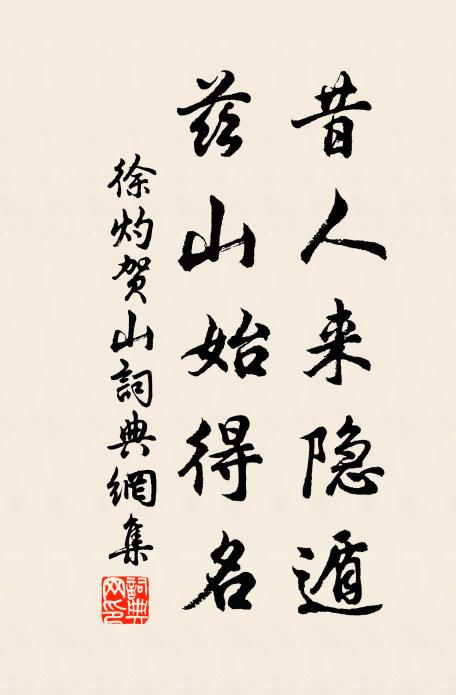 昔人来隐遁
兹山始得名
徐灼贺山詞典網集
詞典网印